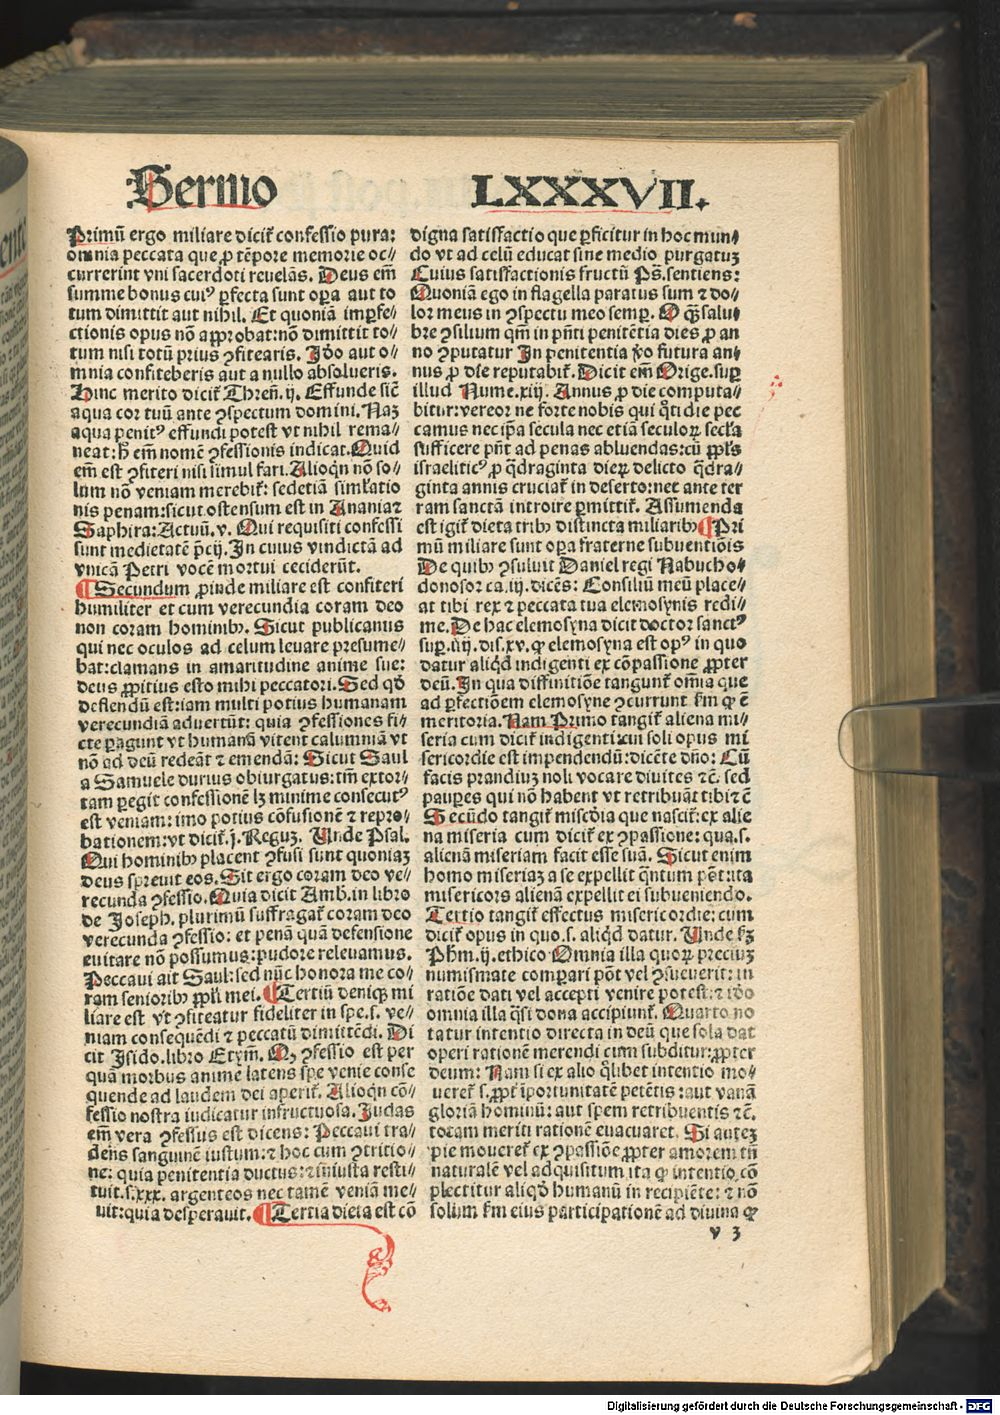 Sermo LXXXVII.
Primũ ergo miliare dicit᷑ confessio pura:
omnia peccata que ꝓ tẽpore memorie oc⸗
currerint vni sacerdoti reuelãs. Deus em̃
summe bonus cuiꝰ ꝑfecta sunt oꝑa aut to
tum dimittit aut nihil. Et quoniã imꝑfe⸗
ctionis opus nõ aꝓrobat: nõ dimittit to⸗
tum nisi totũ prius ꝯfitearis. Iõo aut o⸗
mnia confiteberis aut a nullo absolueris.
Hinc merito dicit᷑ Thren̄. ij. Effunde sic̃
aqua cor tuũ ante ꝯspectum domini. Naꝫ
aqua penitꝰ effundi potest vt nihil rema⸗
neat: h̃ em̃ nomẽ ꝯfessionis indicat. Quid
em̃ est ꝯfiteri nisi simul fari. Alioqn̄ nõ so⸗
lum nõ veniam merebit᷑: sed etiã siml̃atio
nis penam: sicut ostensum est in Anania ⁊
Saphira: Actuũ. v. Qui requisiti confessi
sunt medietatẽ p̃cij. In cuius vindictã ad
vnicã Petri vocẽ mortui ceciderũt.
¶ Secundum ꝓinde miliare est confiteri
humiliter et cum verecundia coram deo
non coram hominibꝰ. Sicut publicanus
qui nec oculos ad celum leuare presume⸗
bat: clamans in amaritudine anime sue:
deus ꝓpitius esto mihi peccatori. Sed qď
deflendũ est: iam multi potius humanam
verecundiã aduertũt: quia ꝯfessiones fi⸗
cte ꝑagunt vt humanã vitent calumniã vt
nõ ad deũ redeãt ⁊ emendã: Sicut Saul
a Samuele durius obiurgatus: tm̃ extor⸗
tam ꝑegit confessionẽ lꝫ minime consecutꝰ
est veniam: imo potius cõfusionẽ ⁊ repro⸗
bationem: vt dicit᷑. j. Reguꝫ. Unde Psal.
Qui hominibꝰ placent ꝯfusi sunt quoniaꝫ
deus spreuit eos. Sit ergo coram deo ve⸗
recunda ꝯfessio. Quia dicit Amb. in libro
de Joseph. plurimũ suffragat᷑ coram deo
verecunda ꝯfessio: et penã quã defensione
euitare nõ possumus: pudore releuamus.
Peccaui ait Saul: sed nũc honora me co⸗
ram senioribꝰ ppl̃i mei. ¶ Tertiũ deniqꝫ mi
liare est vt ꝯfiteatur fideliter in spe. s. ve⸗
niam consequẽdi ⁊ peccatũ dimittẽdi. Di
cit Isido. libro Etym. Qꝫ ꝯfessio est per
quã morbus anime latens spe venie conse
quende ad laudem dei aꝑerit᷑. Alioqn̄ cõ⸗
fessio nostra iudicatur infructuosa. Iudas
em̃ vera ꝯfessus est dicens: Peccaui tra⸗
dens sanguinẽ iustum: ⁊ hoc cum ꝯtritio⸗
ne: quia penitentia ductus: ⁊ iniusta resti⸗
tuit. s. xxx. argenteos nec tamẽ veniã me⸗
uit: quia desperauit. ¶ Tertia dieta est cõ
digna satisfactio que ꝑficitur in hoc mun⸗
do vt ad celũ educat sine medio purgatuꝫ
Cuius satisfactionis fructũ Ps̃. sentiens:
Quoniã ego in flagella paratus sum ⁊ do⸗
lor meus in ꝯspectu meo semꝑ. O q̃ꝫ salu⸗
bre ꝯsilium qm̃ in pñti penitẽtia dies ꝓ an
no ꝯputatur In penitentia ṽo futura an⸗
nus ꝓ die reputabit᷑. Dicit em̃ Orige. suꝑ
illud Nume. xiij. Annus ꝓ die computa⸗
bitur: vereor ne forte nobis qui q̃ti die pec
camus nec ip̃a secula nec etiã seculoꝝ secl̃a
sufficere pñt ad penas abluendas: cũ ppl̃s
israeliticꝰ ꝓ q̃draginta dieꝝ delicto q̃dra⸗
ginta annis cruciat᷑ in deserto: nec ante ter
ram sanctã introire ꝑmittit᷑. Assumenda
est igit᷑ dieta tribꝰ distincta miliaribꝰ ¶ Pri
mũ miliare sunt oꝑa fraterne subuentiõis
De quibꝰ ꝯsuluit Daniel regi Nabucho⸗
donosor ca. iij. dicẽs: Consiliũ meũ place⸗
at tibi rex ⁊ peccata tua elemosynis redi⸗
me. De hac elemosyna dicit doctor sanctꝰ
suꝑ. iiij. dis. xv. ꝙ elemosyna est opꝰ in quo
datur aliqď indigenti ex cõpassione ꝓpter
deũ. In qua diffinitiõe tangunt᷑ om̃ia que
ad ꝑfectiõem elemosyne ꝯcurrunt ẜm ꝙ ẽ
meritoria. Nam Primo tangit᷑ aliena mi⸗
seria cum dicit᷑ indigenti: cui soli opus mi
sericordie est impendendũ: dicẽte dño: Cũ
facis prandiuꝫ noli vocare diuites ⁊c̃. sed
pauꝑes qui nõ habent vt retribuãt tibi ⁊c̃
Secũdo tangit᷑ misc̃dia que nascit᷑ ex alie
na miseria cum dicit᷑ ex ꝯpassione: qua. s.
alienã miseriam facit esse suã. Sicut enim
homo miseriaꝫ a se expellit q̃ntum põt: ita
misericors alienã expellit ei subueniendo.
Tertio tangit᷑ effectus misericordie: cum
dicit᷑ opus in quo. s. aliqď datur. Unde ẜꝫ
Phm̃. ij. ethico Omnia illa quoꝝ preciuꝫ
numismate comꝑari põt vel ꝯsueuerit: in
ratiõe dati vel accepti venire potest: ⁊ iõo
omnia illa q̃si dona accipiunt᷑. Quarto no
tatur intentio directa in deũ que sola dat
operi rationẽ merendi cum subditur: ꝓpter
deum: Nam si ex alio q̃libet intentio mo⸗
ueret᷑ s. ꝓpt᷑ iportunitatẽ petẽtis: aut vanã
gloriã hominũ: aut spem retribuentis ⁊c̃.
totam meriti rationẽ euacuaret. Si auteꝫ
pie moueret᷑ ex ꝯpassiõe ꝓpter amorem tñ
naturalẽ vel adquisitum ita ꝙ intentio cõ
plectitur aliqď humanũ in recipiẽte: ⁊ nõ
solum ẜm eius participationẽ ad diuina ꝙ
v 3
Digitalisierung gefördert durch die Deutsche Forschungsgemeinschaft - DFG